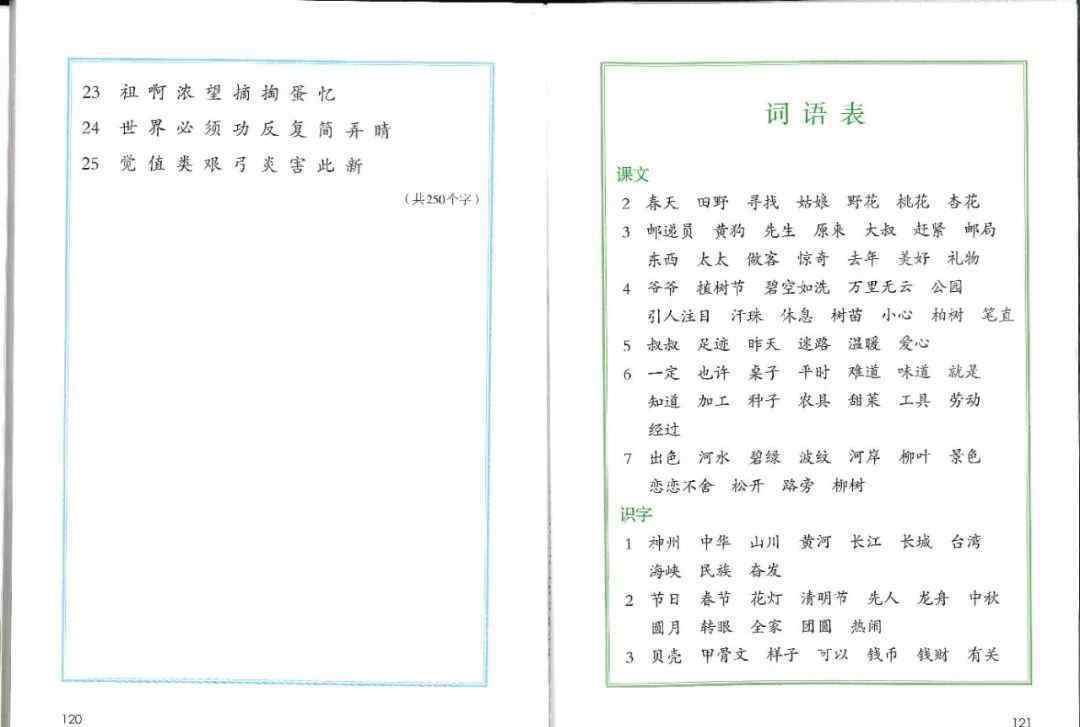 23 祖 啊 浓 望 摘 掏 蛋 忆
24 世 界 必 须 功 反 复 简 弄 睛
25 觉 值 类 艰 弓 炎 害 此 新
（共250个字）
120
词语表
课文
2 春天 田野 寻找 姑娘 野花 桃花 杏花
3 邮递员 黄狗 先生 原来 大叔 赶紧 邮局
东西 太太 做客 惊奇 去年 美好 礼物
4 爷爷 植树节 碧空如洗 万里无云 公园
引人注目 汗珠 休息 树苗 小心 柏树 笔直
5 叔叔 足迹 昨天 迷路 温暖 爱心
6 一定 也许 桌子 平时 难道 味道 就是
知道 加工 种子 农具 甜菜 工具 劳动
经过
7 出色 河水 碧绿 波纹 河岸 柳叶 景色
恋恋不舍 松开 路旁 柳树
识字
1 神州 中华 山川 黄河 长江 长城 台湾
海峡 民族 奋发
2 节日 春节 花灯 清明节 先人 龙舟 中秋
圆月 转眼 全家 团圆 热闹
3 贝壳 甲骨文 样子 可以 钱币 钱财 有关
121